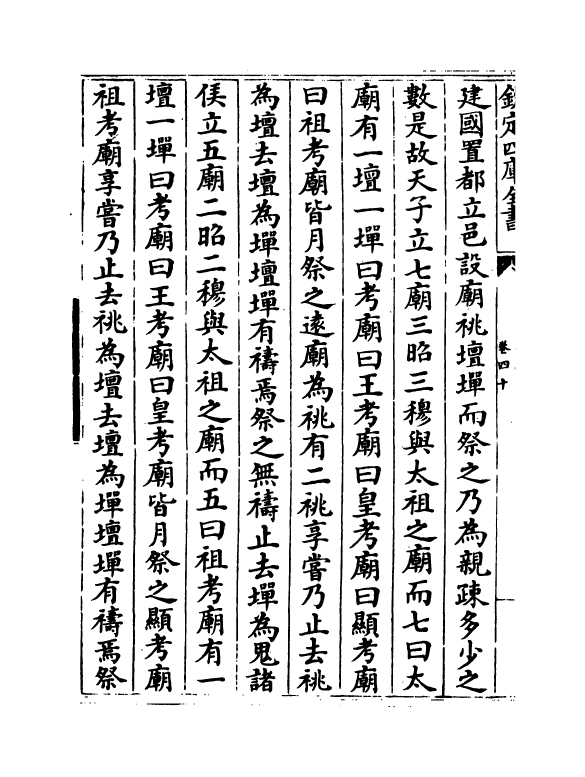 欽定四庫全書
卷四十
建國置都立邑設廟祧壇墠而祭之乃為親疎多少之
數是故天子立七廟三昭三穆與太祖之廟而七曰太
廟有一壇一墠曰考廟曰王考廟曰皇考廟曰顯考廟
曰祖考廟皆月祭之逺廟為祧有二祧享嘗乃止去祧
為壇去壇為墠壇墠有禱焉祭之無禱止去墠為鬼諸
侯立五廟二昭二穆與太祖之廟而五曰祖考廟有一
壇一墠曰考廟曰王考廟曰皇考廟皆月祭之顯考廟
祖考廟享嘗乃止去祧為壇去壇為墠壇墠有禱焉祭